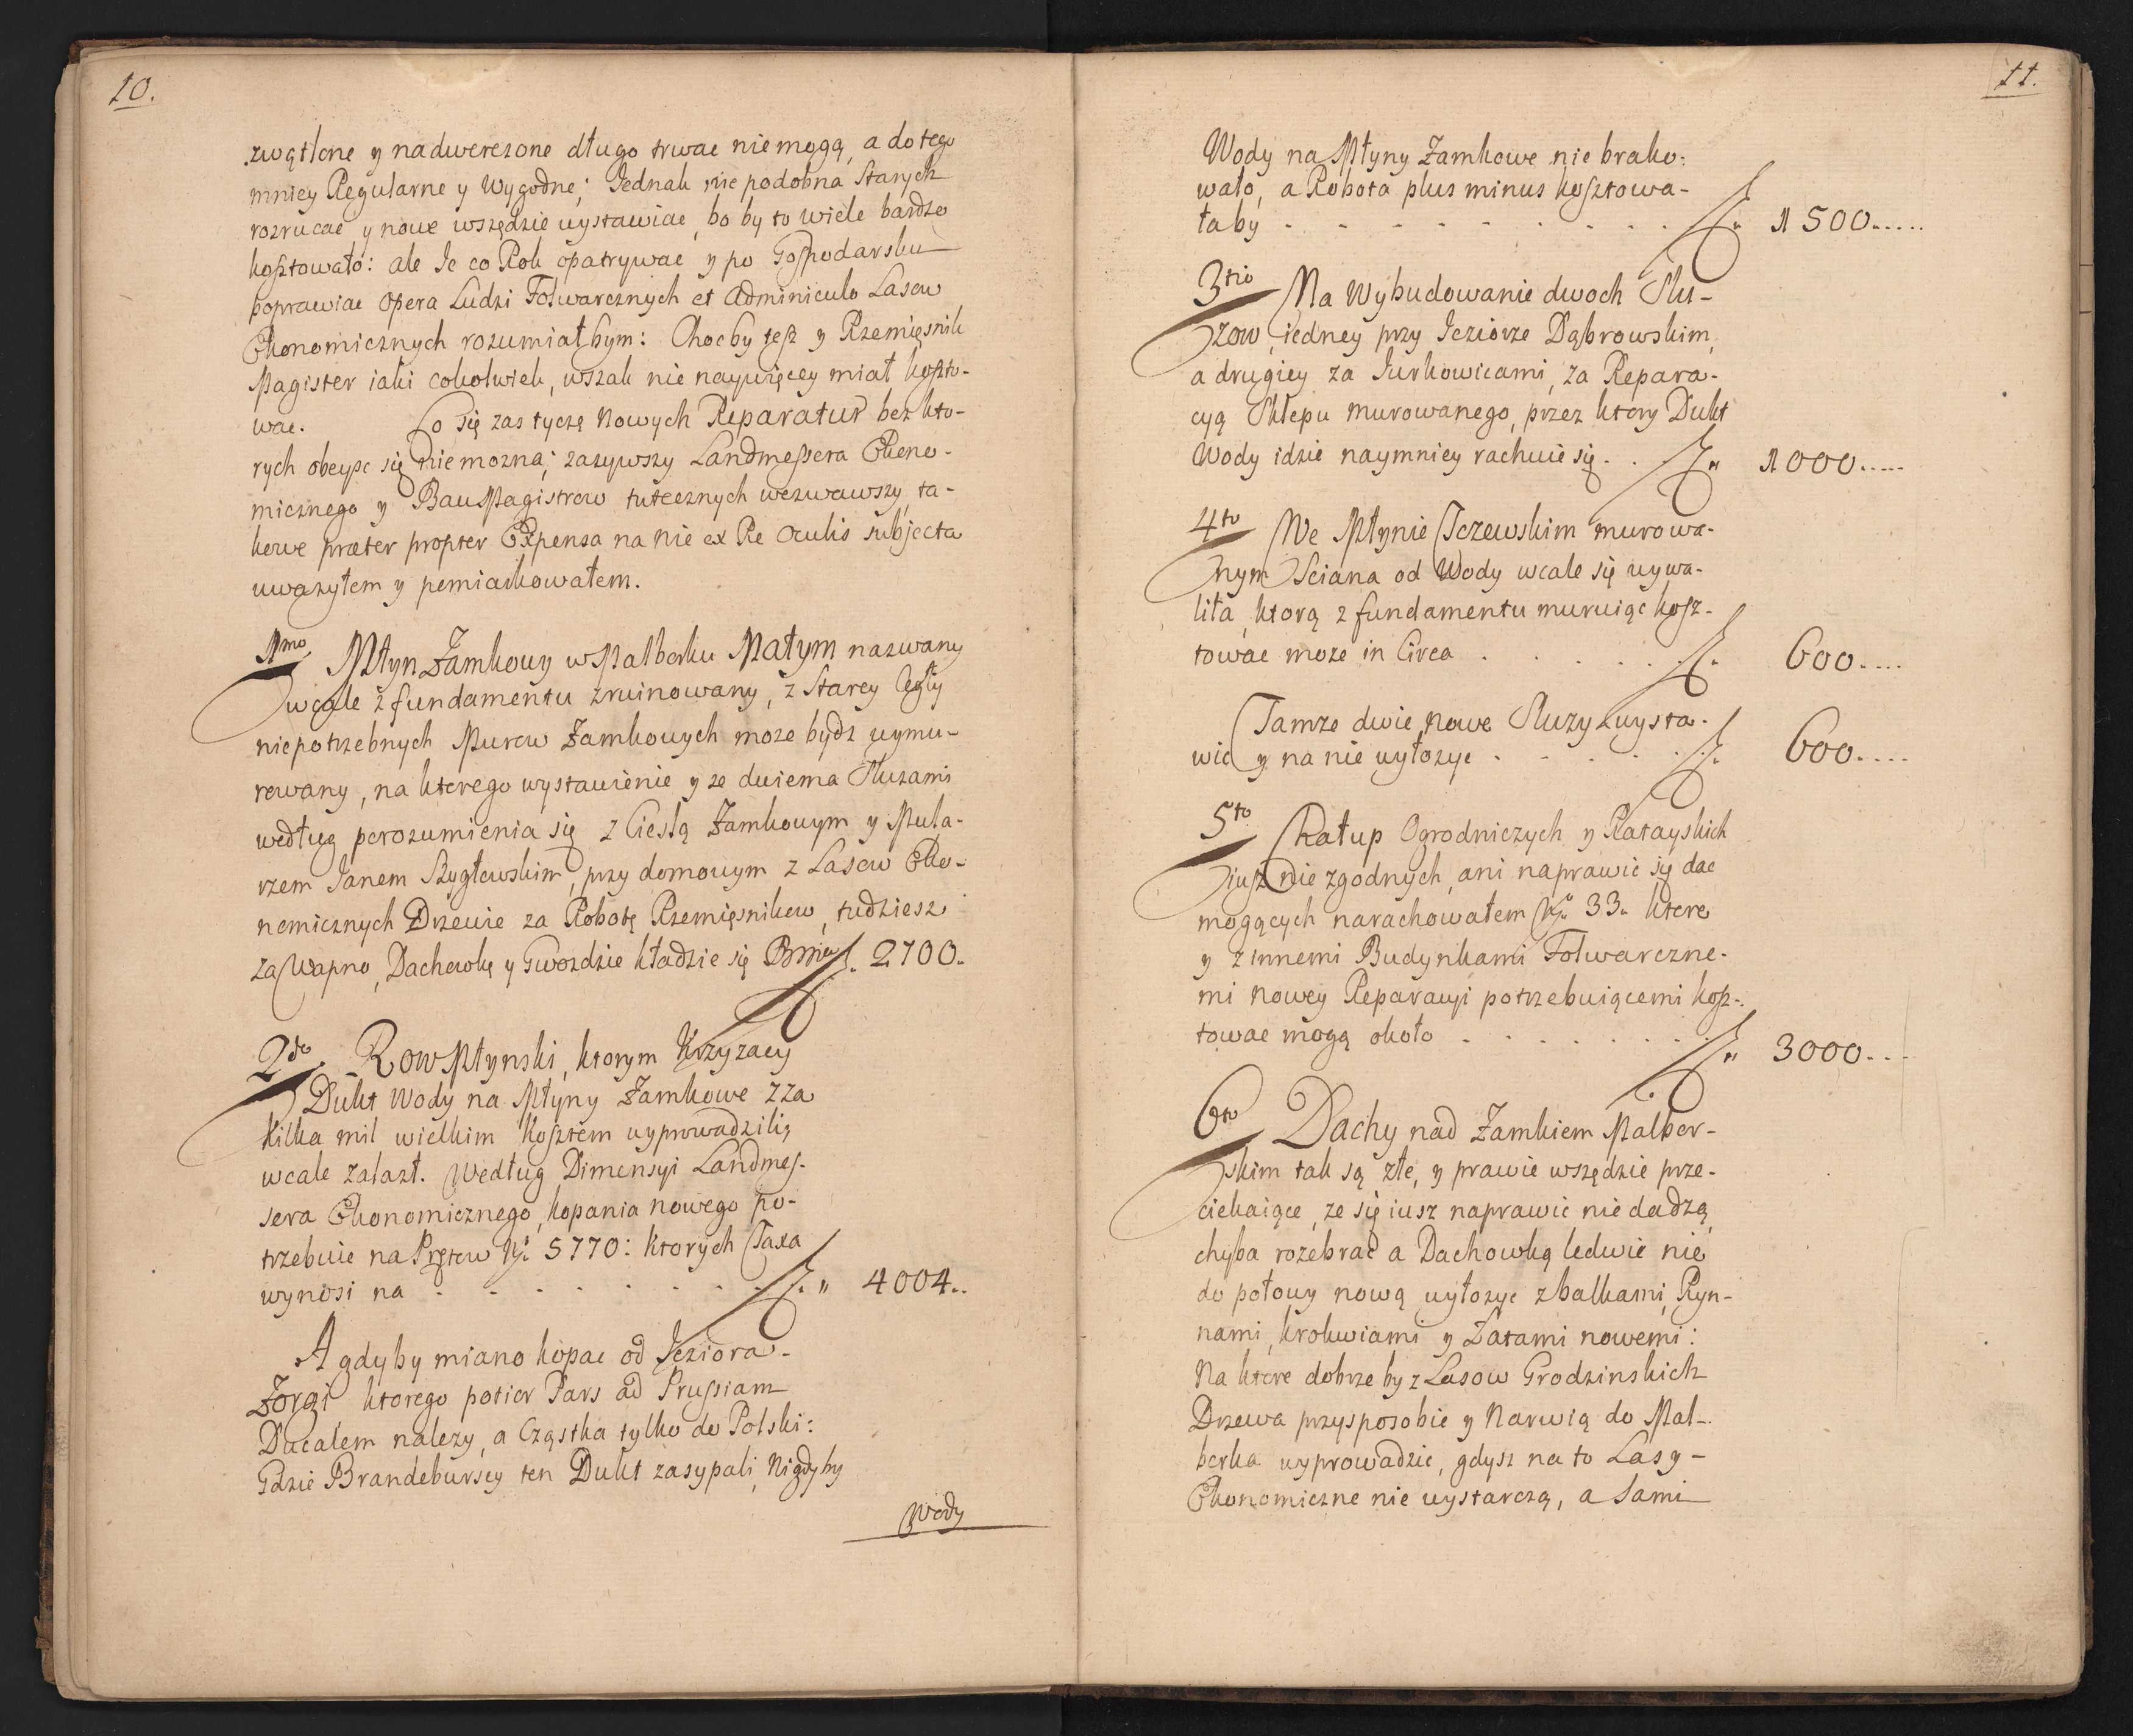 10.
zwątlone y nadwerezone długo trwac niemogą, a do tego
mniey Regularne y Wygodne; Jednak nie podobna Starych
rozrucac y nowe wszędzie wystawiac, bo by to wiele bardzo
kosztowało: ale Je co Rok opatrywac y po Gospodarsku
poprawiac opera Ludzi Folwarcznych et Adminiculo Lasow
Ekonomicznych rozumiałbym: Chocby tesz y Rzemięsnik
Magister iaki cokolwiek, wszak nie naywięcey miał koszto-
wac. Co się zas tyczę Nowych Reparatur bez kto-
rych obeysc się niemozna; zazywszy Landmessera Ekono-
micznego y BauMagistrow tutecznych wezwawszy, ta-
kowe præter propter Expensa na nie ex Re Oculis subjecta
uwazyłem y pomiarkowałem.
1mo Młyn Zamkowy w Malborku Małym nazwany
wcale z fundamentu zruinowany, z Starey Cegły
niepotrzebnych Murow Zamkowych moze bydz wymu-
rowany, na ktorego wystawienie y ze dwiema Sluzami
według porozumienia się z Cieslą Zamkowym y Mula-
rzem Janem Szygłowskim, przy domowym z Lasow Eko-
nomicznych Drzewie za Robotę Rzemięsnikow, tudziesz
za Wapno, Dachowkę y Gwozdzie kładzie się f. 2700.
2do. Row Młynski, ktorym Krzyzacy
Dukt Wody na Młyny Zamkowe zza
kilka mil wielkim kosztem wyprowadzili,
wcale zalazł. Według Dimensyi Landmes-
sera Ekonomicznego, kopania nowego po-
trzebuie na Prętow No 5770: ktorych Taxa
wynosi na . . . . . . . f. " 4004..
A gdyby miano kopac od Jeziora
Zorgi ktorego potior Pars ad Prussiam
Ducalem nalezy, a Cząstka tylko do Polski:
Gdzie Brandeburscy ten Dukt zasypali, Nigdyby
Wody
11.
Wody na Młyny Zamkowe nie brako-
wało, a Robota plus minus kosztowa-
łaby . . . . . . . . f. " 1500.....
3tio Na Wybudowanie dwoch Slu-
zow, iedney przy Jeziorze Dąbrowskim,
a drugiey za Jurkowicami, za Repara-
cyą Sklepu murowanego, przez ktory Dukt
Wody idzie naymniey rachuie się . . f. " 1000.....
4to We Młynie Tczewskim murowa-
nym Sciana od Wody wcale się wywa-
liła, ktorą z fundamentu muruiąc kosz-
towac moze in Circa . . . . . f. 600....
Tamze dwie nowe Sluzy wysta-
wic y na nie wyłozyc . . . . . f. 600....
5to Chałup Ogrodniczych y Ratayskich
iusz nie zgodnych, ani naprawic się dac
mogących narachowałem No 33. ktore
y z innemi Budynkami Folwarczne-
mi nowey Reparacyi potrzebuiącemi kosz-
towac mogą około . . . . . . . f. " 3000...
6to Dachy nad Zamkiem Malbor-
skim tak są złe, y prawie wszędzie prze-
ciekaiące, ze się iusz naprawic nie dadzą,
chyba rozebrac a Dachowką ledwie nie
do połowy nową wyłozyc z balkami, Ryn-
nami, krokwiami y Łatami nowemi:
Na ktore dobrze by z Lasow Grodzinskich
Drzewa przysposobic y Narwią do Mal-
borka wyprowadzic, gdysz na to Lasy
Ekonomiczne nie wystarczą, a Sami